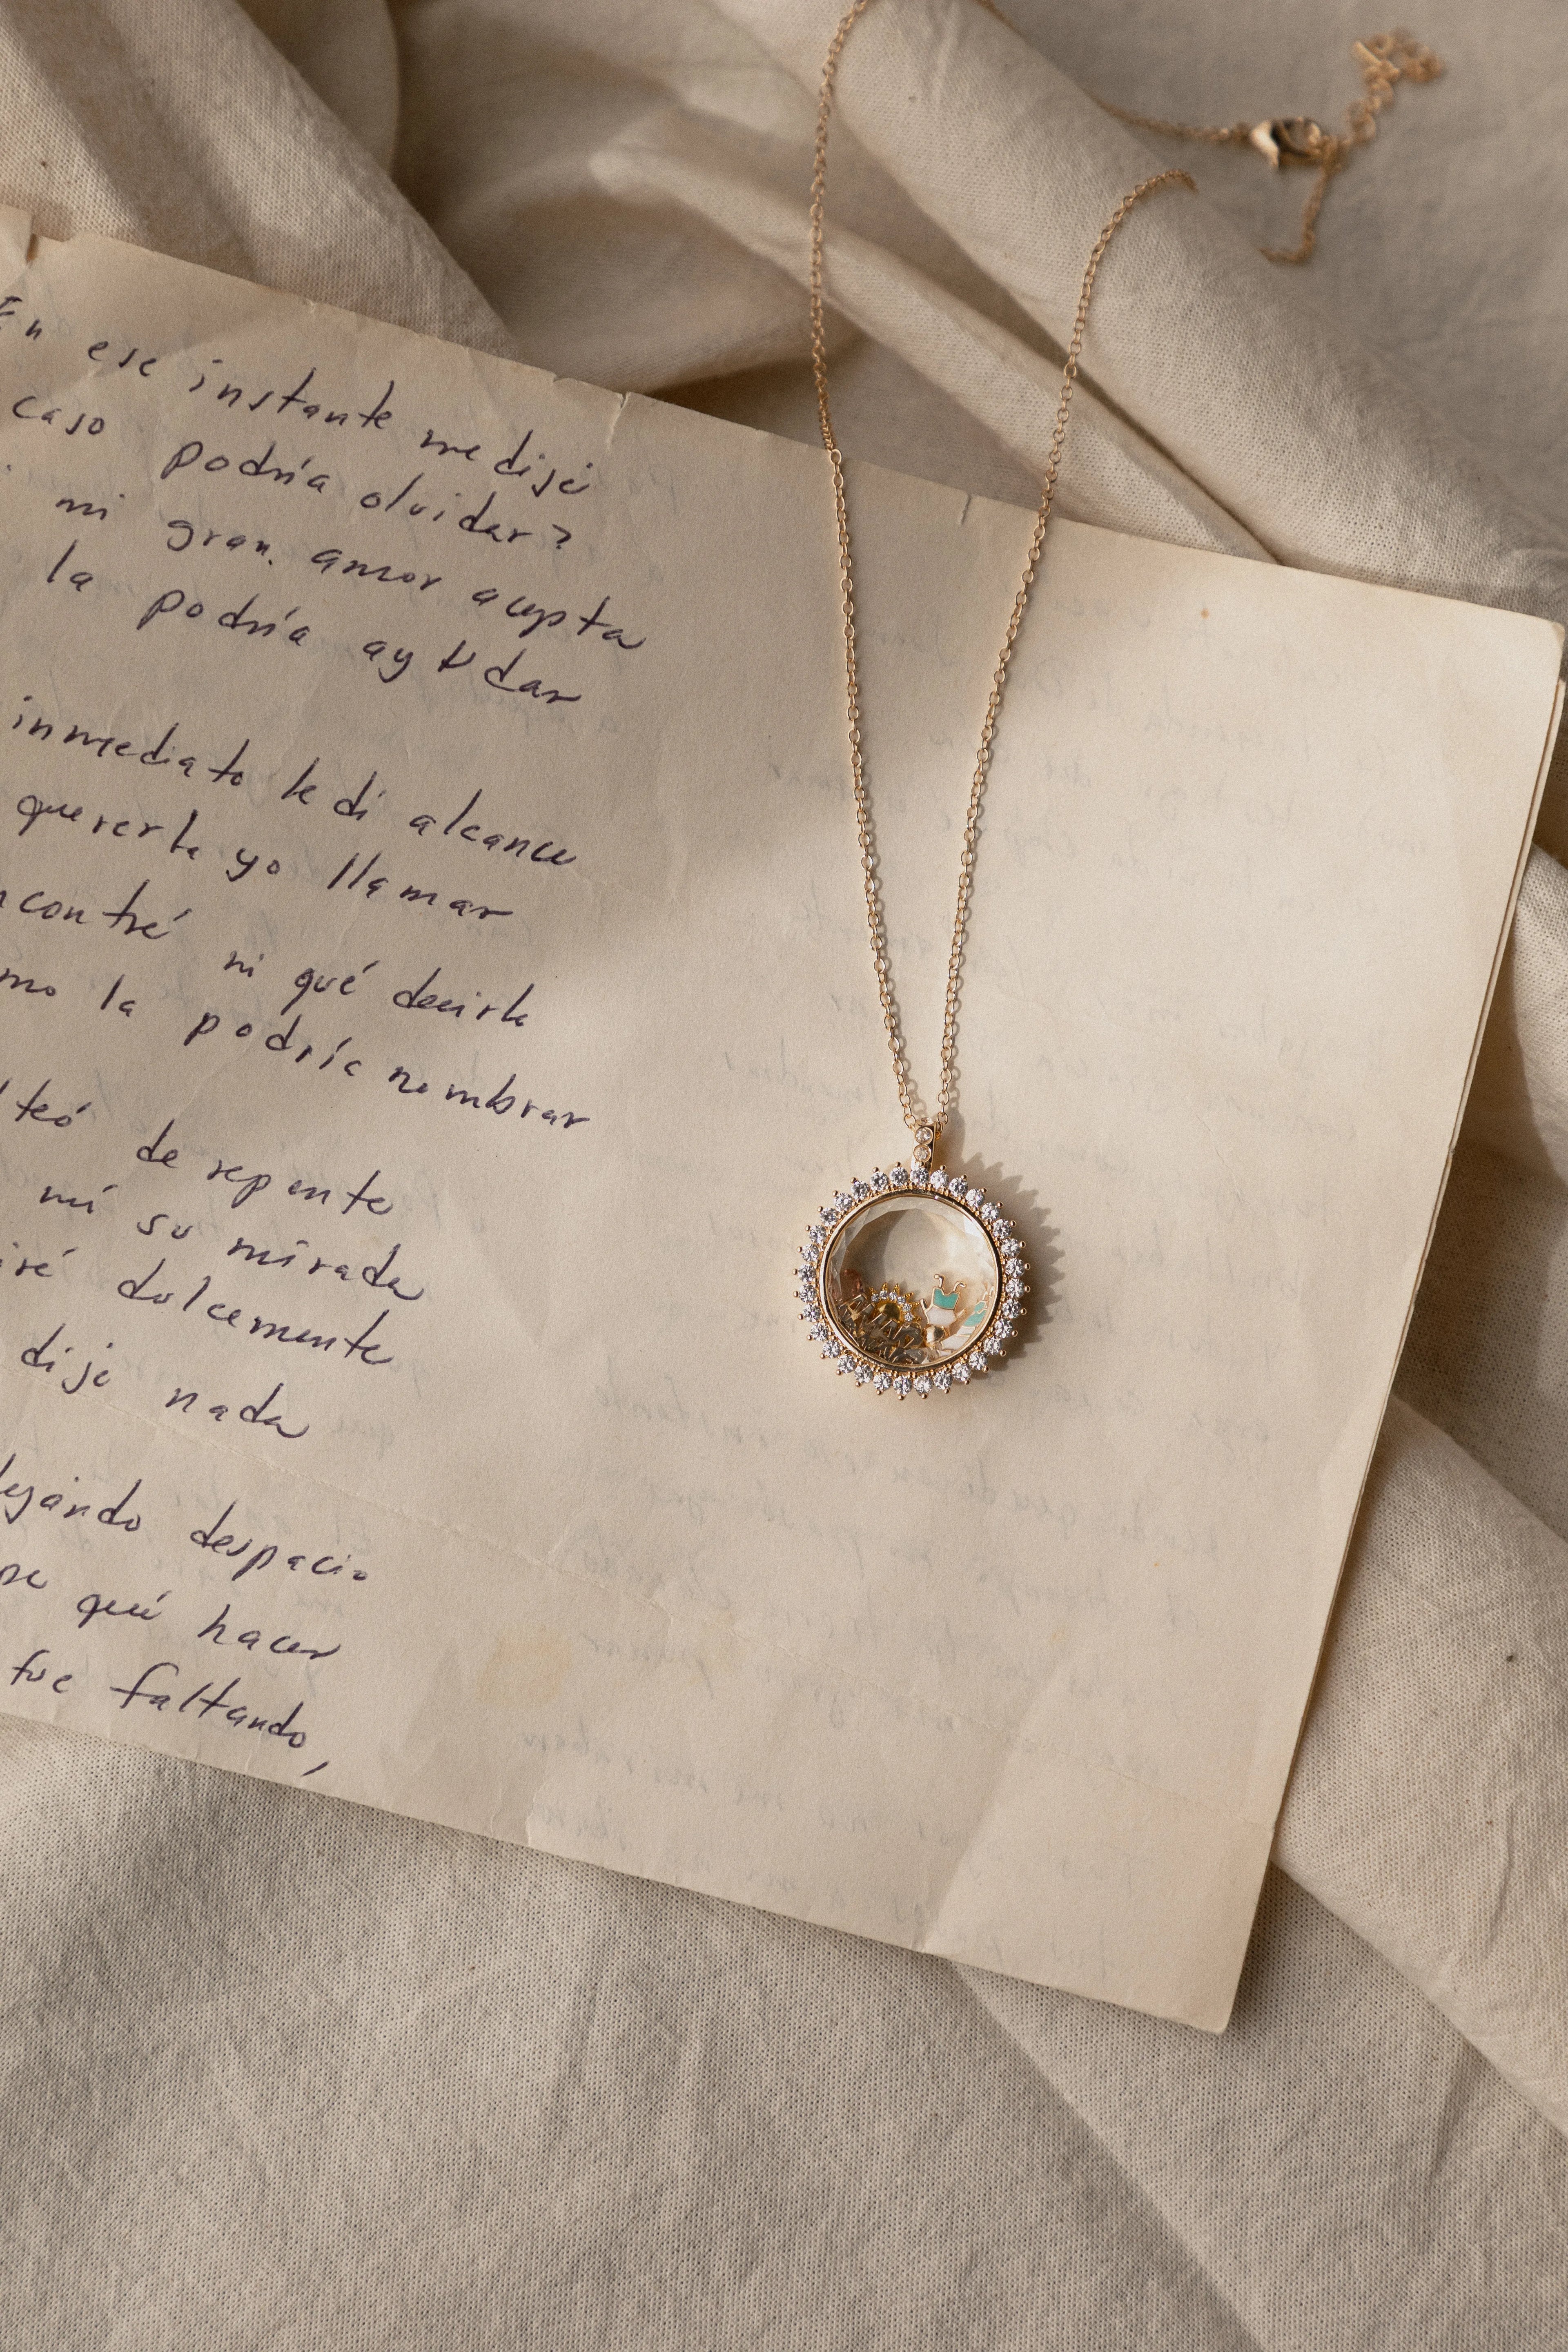 En ese instante me dije
caso podría olvidar?
mi gran amor acepta
la podría ayudar
inmediato le di alcance
quererla yo llamar
ncontré ni qué decirle
mo la podría nombrar
lteó de repente
mí su mirada
iré dulcemente
dije nada
legando despacio
se qué hacer
fue faltando,